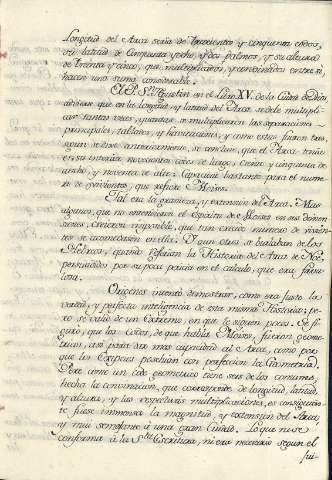 Longitud del Arca seria de trescientos y cinquenta codos,
su latitud de Cinquenta y ocho, y dos palmos, y su altura
de treinta y cinco, que multiplicados, y combinados entre si
hacen una suma considerable.
El P. S.n Agustin en el Libro XV. de la Ciudad de Dios
dice que en la longitud y latitud del Arca, se debe multipli-
car tantas veces, quantas se multiplicaron las separaciones
principales, tablados, y y como estos fueron tres,
segun se dixo anteriormente, se concluye, que el Arca tenia
en su interior novecientos codos de largo, ciento y cinquenta de
ancho, y noventa de alto: Capacidad bastante para el nume-
ro de vivientes, que refiere Moises.
Tal era la grandeza, y extension del Arca. Mas
algunos, que no entendieron el Espiritu de Moises en sus dimen-
siones, creieron imposible, que tan crecido numero de vivien-
tes se acomodasen en ella: Y aun otros se burlaban de los
Hebreos, quando referian la Historia del Arca de Noè,
persuadidos por su poca pericia en el calculo, que era fabu-
losa.
Origenes intentó demostrar, como era justo la
verdad, y perfecta inteligencia de esta misma Historia; pe-
ro se valió de un extremo, en que le siguen pocos. Se fi-
guró, que los codos, de que habla Moises, fueron geome-
tricos, asi para dar mas capacidad al Arca, como por-
que los Egipcios posehian con perfeccion la Geometria.
Pero como un codo geometrico tiene seis de los comunes,
hecha la convinacion, que corresponde de longitud, latitud,
y altura, y las respectivas multiplicaciones, es consiguien-
te fuese inmensa la magnitud, y extension del Arca,
y mui semejante à una gran Ciudad. Lo que no se
conforma à la S.ta Escritura, ni era necesario segun el
jui-